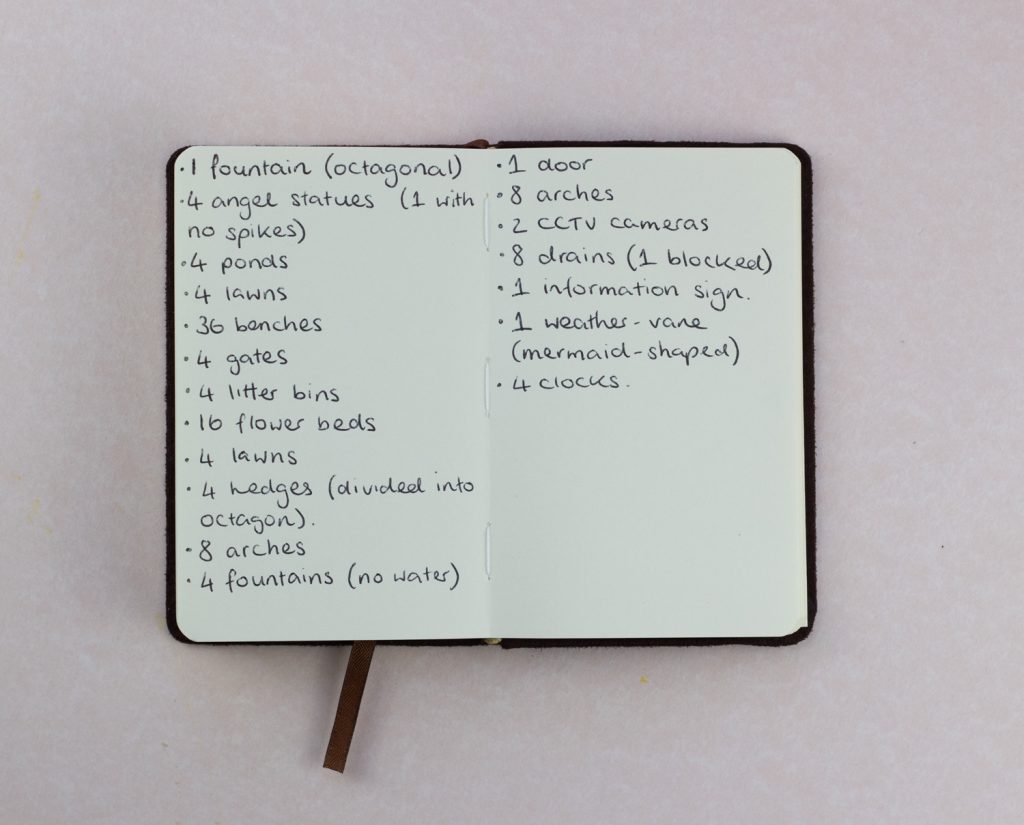 · 1 fountain (octagonal)
· 4 angel statues (1 with
no spikes)
· 4 ponds
· 4 lawns
· 36 benches
· 4 gates
· 4 litter bins
· 16 flower beds
· 4 lawns
· 4 hedges (divided into
octagon).
· 8 arches
· 4 fountains (no water)
· 1 door
· 8 arches
· 2 CCTV cameras
· 8 drains (1 blocked)
· 1 information sign.
· 1 weather-vane
(mermaid-shaped)
· 4 clocks.